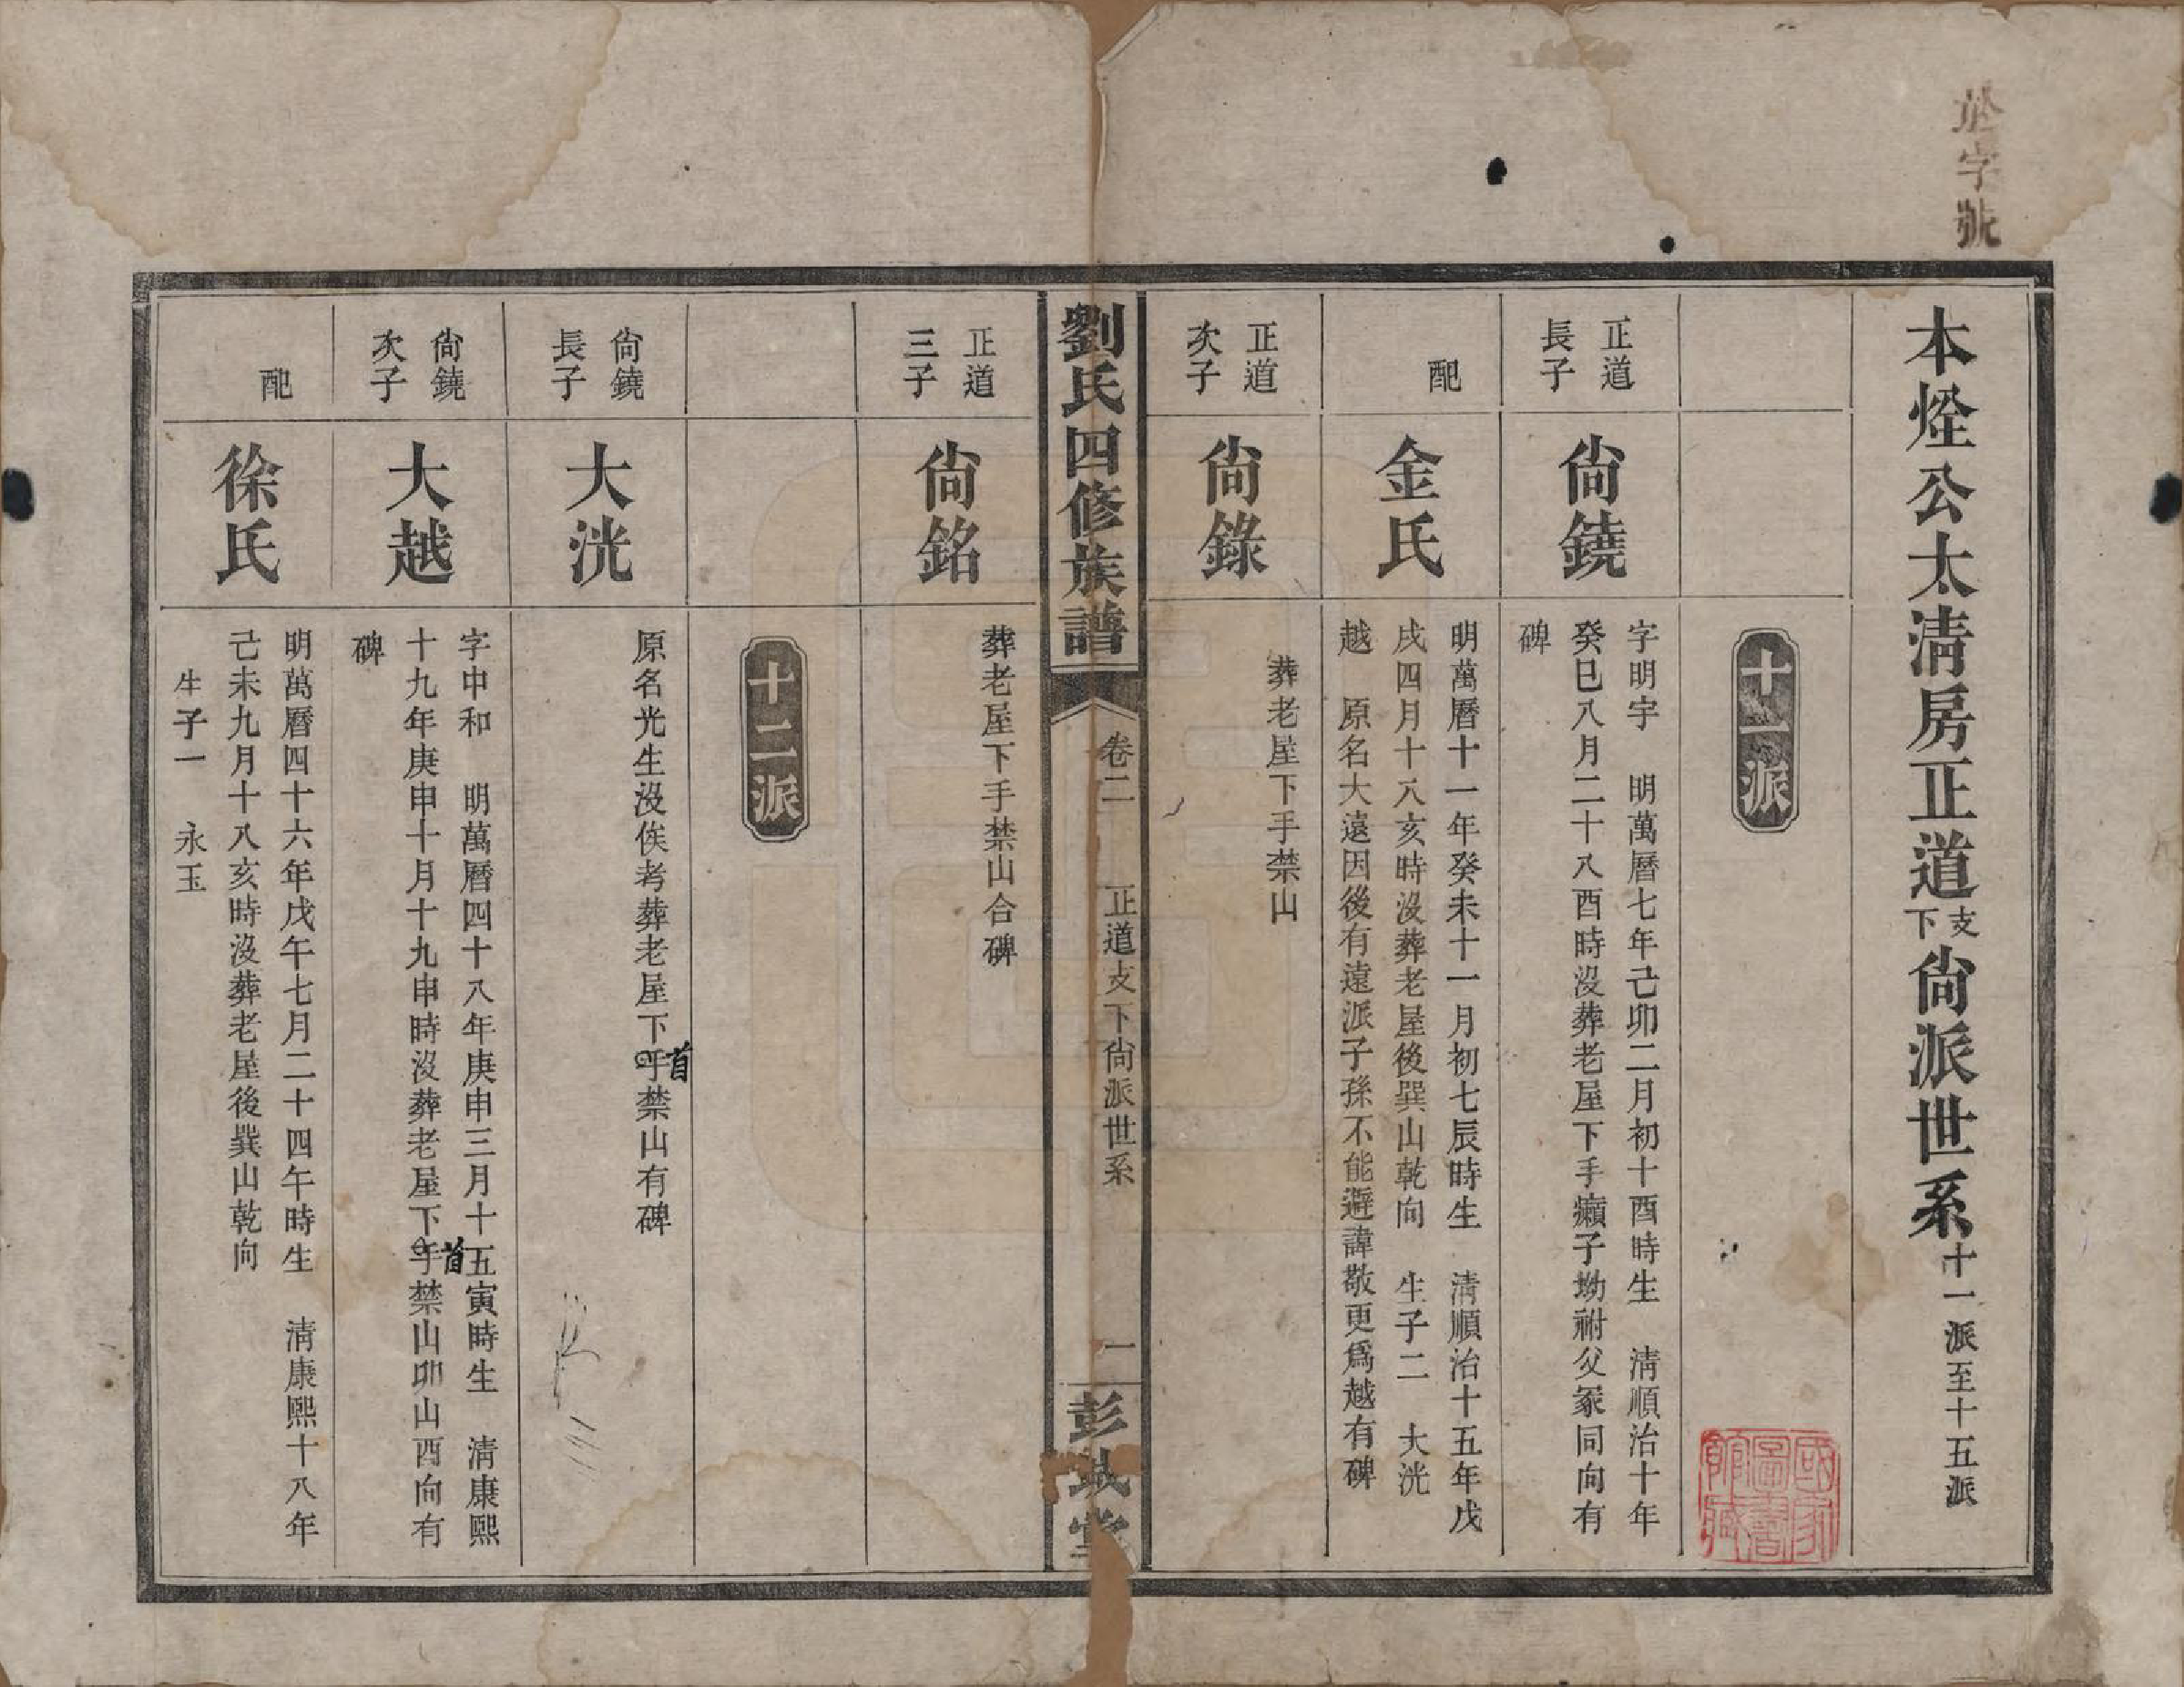 於字號
本烇公太淸房正道支下尙派世系十一派至十五派
十一派
正道長子
尙鐃
字明宇　明萬曆七年己卯二月初十酉時生　淸順治十年
癸巳八月二十八酉時沒葬老屋下手癩子坳祔父冢同向有
碑
配
金氏
明萬曆十一年癸未十一月初七辰時生　淸順治十五年戊
戌四月十八亥時沒葬老屋後巽山乾向　生子二　大洸
越　原名大遠因後有遠派子孫不能避諱敬更爲越有碑
正道次子
尙錄
葬老屋下手禁山
劉氏四修族譜
卷二　正道支下尙派世系　一
彭城堂
正道三子
尙銘
葬老屋下手禁山合碑
十二派
尙鐃長子
大洸
原名光生沒俟考葬老屋下手首禁山有碑
尙鐃次子
大越
字中和　明萬曆四十八年庚申三月十五寅時生　淸康熙
十九年庚申十月十九申時沒葬老屋下手首禁山卯山酉向有
碑
配
徐氏
明萬曆四十六年戊午七月二十四午時生　淸康熙十八年
己未九月十八亥時沒葬老屋後巽山乾向
生子一　永玉
國家圖書館藏